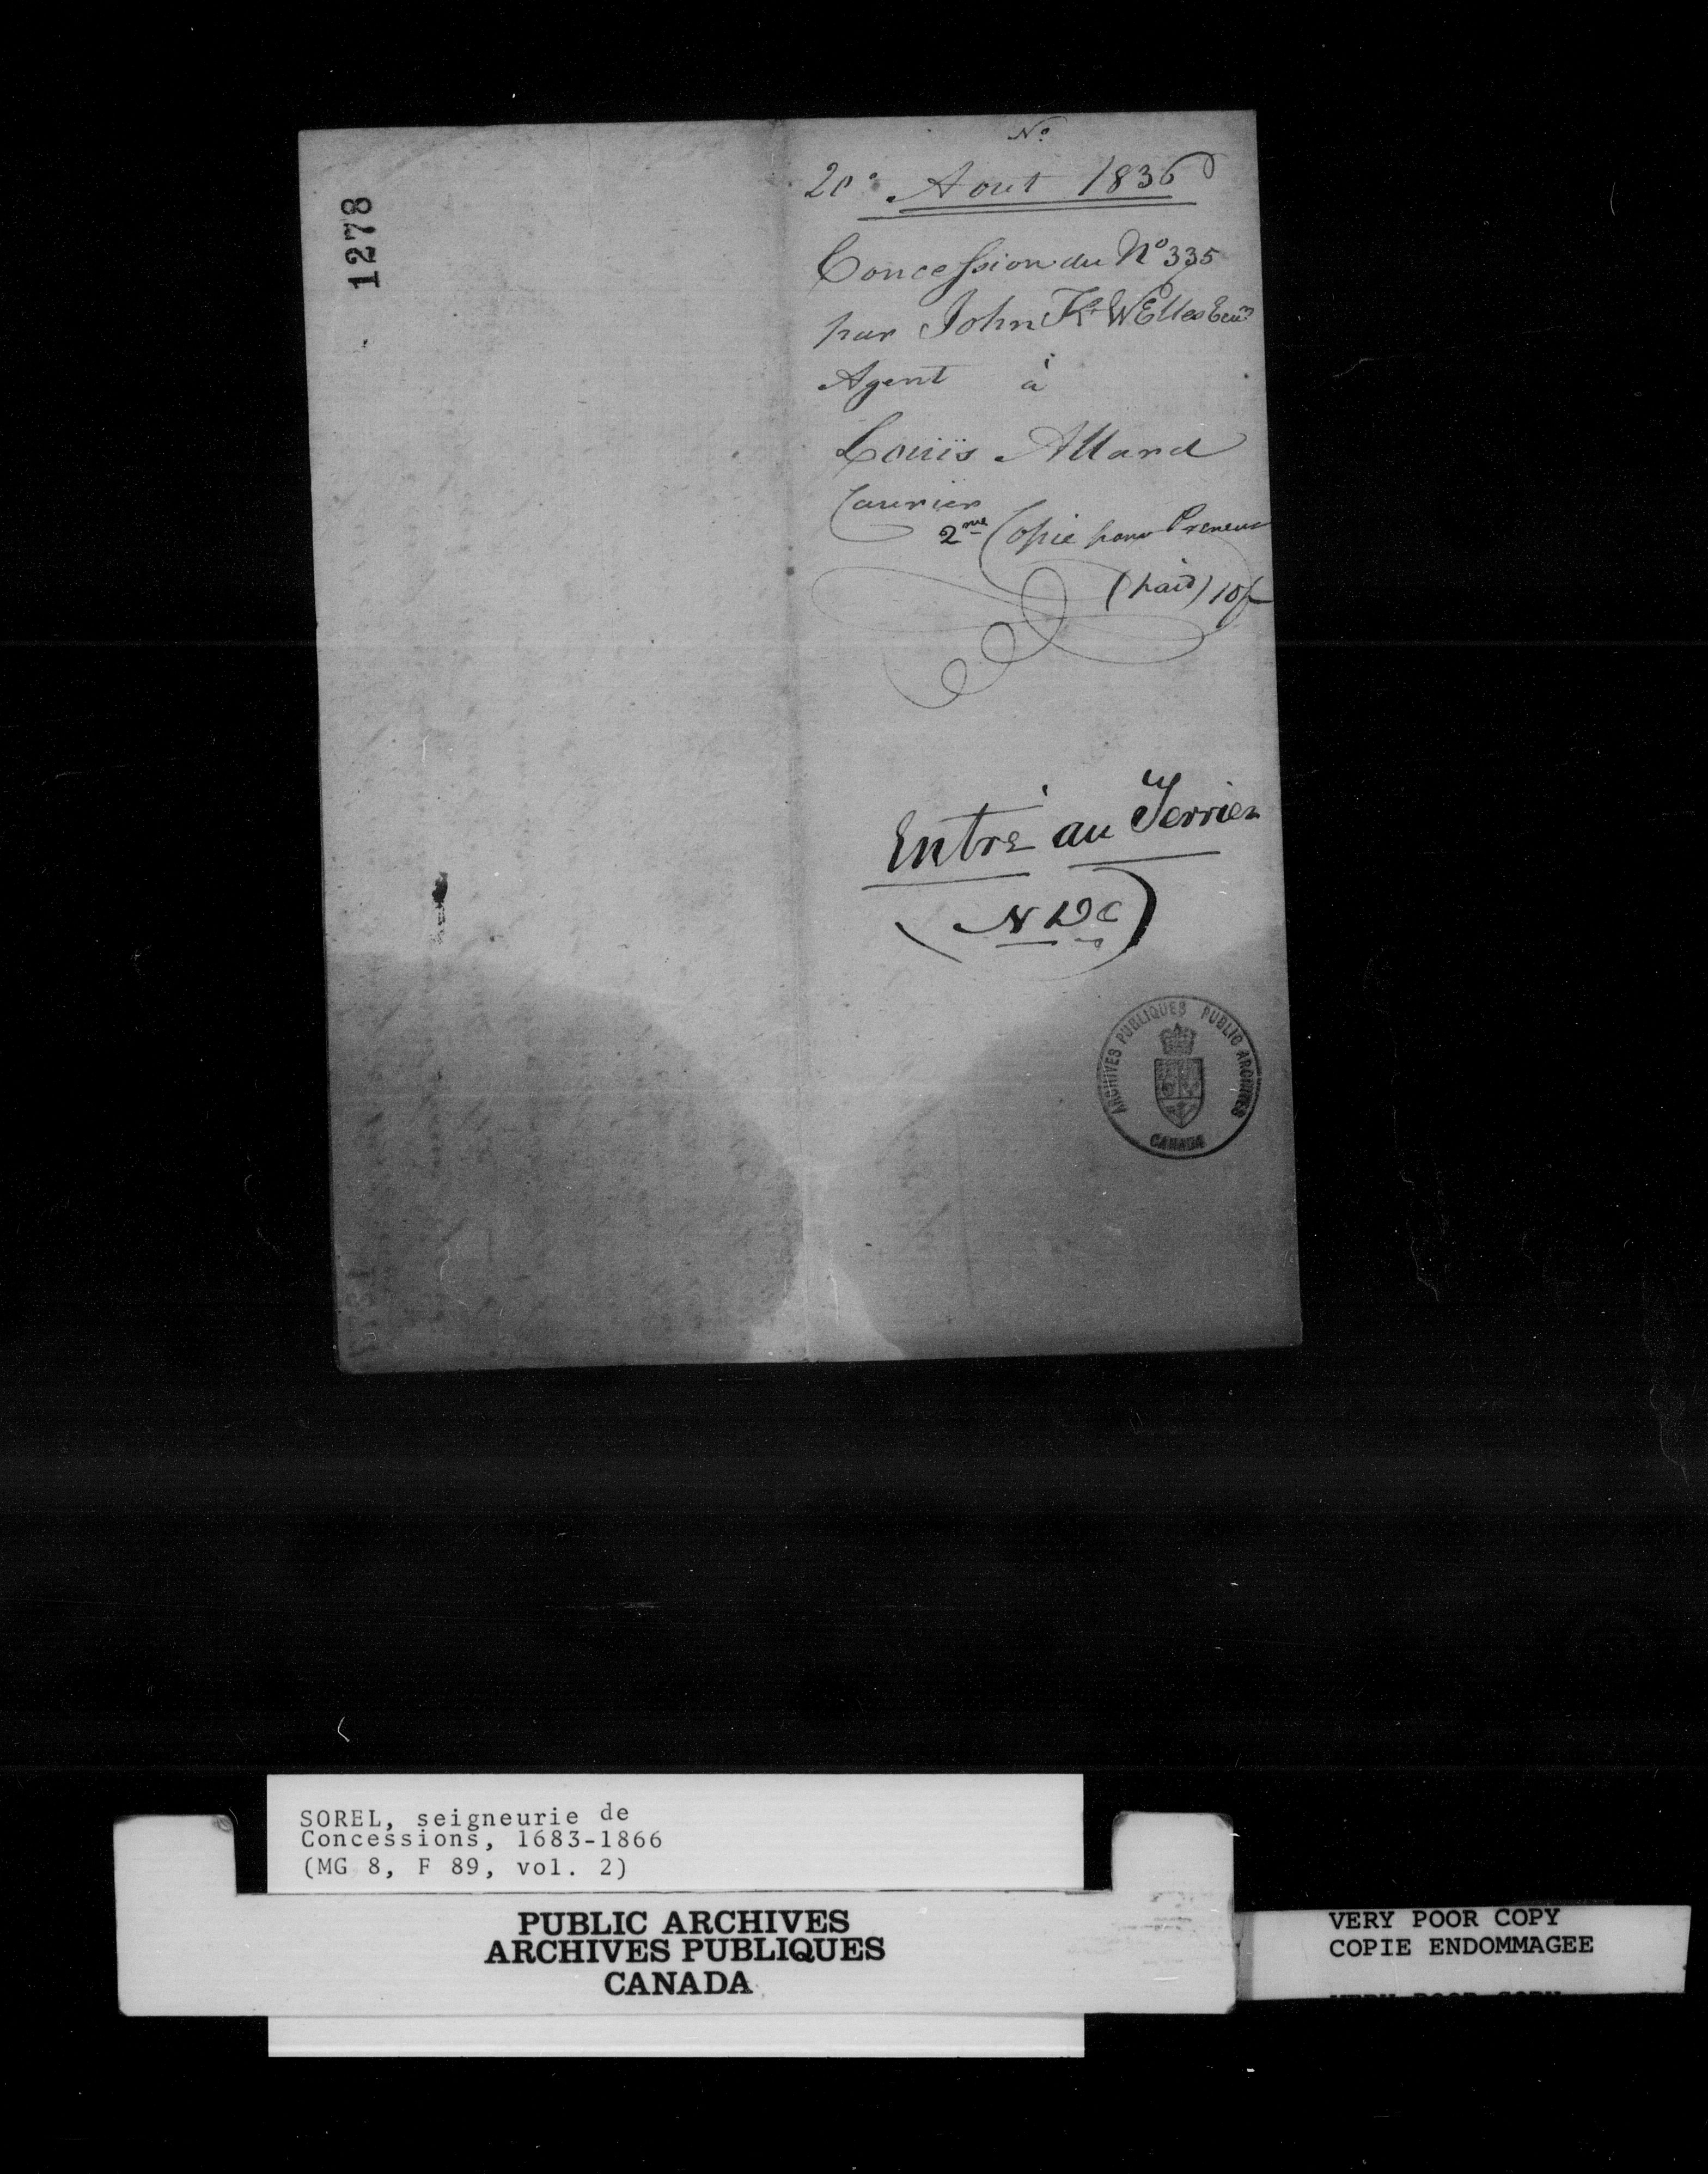 1278
No.
20e Aout 1836
Concession du No 335
par John Kr WElles Ecuier
Agent à
Louis Allard
2me Copie pour Preneur
(paid) 10/-
Entré au Terrier
(NDC)
ARCHIVES PUBLIQUES PUBLIC ARCHIVES
CANADA
SOREL, seigneurie de
Concessions, 1683-1866
(MG 8, F 89, vol. 2)
PUBLIC ARCHIVES
ARCHIVES PUBLIQUES
CANADA
VERY POOR COPY
COPIE ENDOMMAGEE
VERY POOR COPY